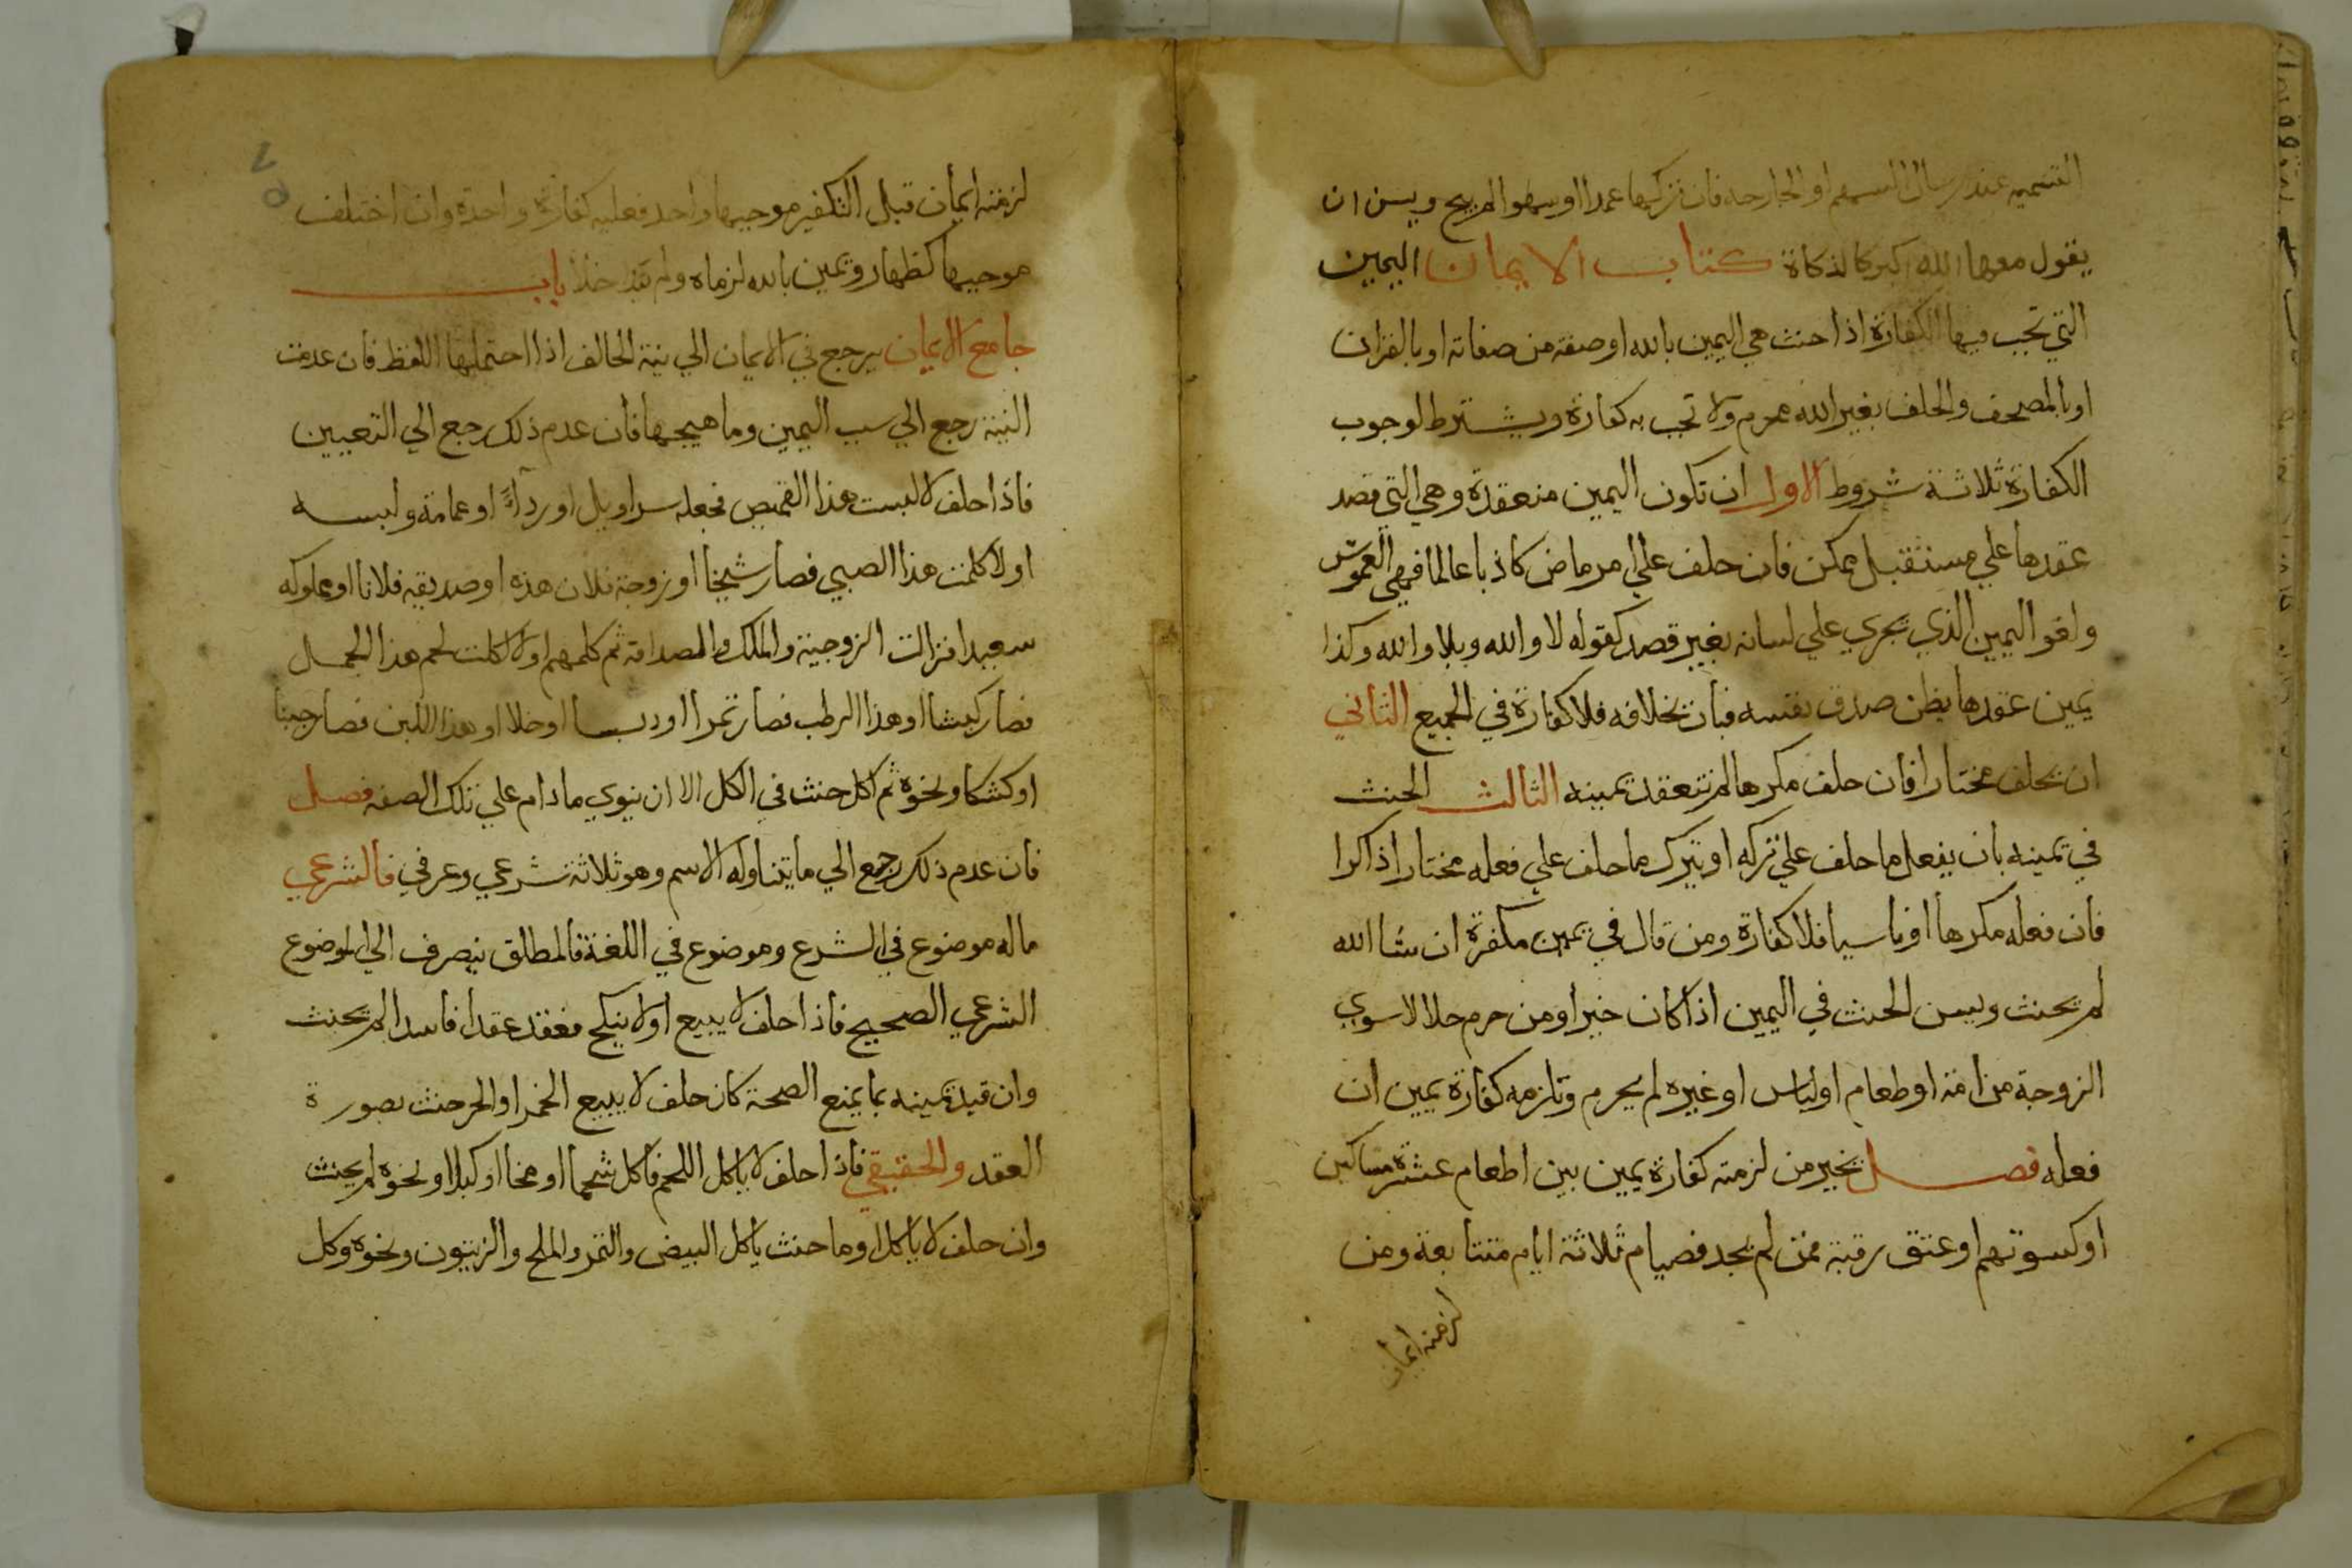 التسميه عند ارسال السهم او الجارحه فان تركها عمدا او سهوا لم يبح ويسن ان
يقول معها الله اكبر كالذكاة كتاب الايمان اليمين
التي تجب فيها الكفارة اذا حنث هي اليمين بالله او صفة من صفاته او بالقران
او بالمصحف والحلف بغير الله محرم ولا تجب به كفارة ويشترط لوجوب
الكفارة ثلاثة شروط الاول ان تكون اليمين منعقدة وهي التي قصد
عقدها علي مستقبل ممكن فان حلف علي امر ماض كاذبا عالما فهي الغموس
ولغو اليمين الذي يجري علي لسانه بغير قصد كقوله لا والله وبلا والله وكذا
يمين عقدها يظن صدق نفسه فبان بخلافه فلا كفارة في الجميع الثاني
ان يحلف مختارا فان حلف مكرها لم تنعقد يمينه الثالث الحنث
في يمينه بان يفعل ما حلف علي تركه او يترك ما حلف علي فعله مختارا ذاكرا
فان فعله مكرها او ناسيا فلا كفارة ومن قال في يمين مكفرة ان شا الله
لم يحنث ويسن الحنث في اليمين اذا كان خيرا ومن حرم حلالا سوي
الزوجة من امة او طعام او لباس او غيره لم يحرم وتلزمه كفارة يمين ان
فعله فصل يخير من لزمته كفارة يمين بين اطعام عشرة مساكين
او كسوتهم او عتق رقبة فمن لم يجد فصيام ثلاثة ايام متتابعة ومن
لزمته ايمان
٧٥
لزمته ايمان قبل التكفير موجبها واحد فعليه كفارة واحدة وان اختلف
موجبها كظهار ويمين بالله لزماه ولم يتداخلا باب
جامع الايمان يرجع في الايمان الي نية الحالف اذا احتملها اللفظ فان عدمت
النية رجع الي سبب اليمين وما هيجها فان عدم ذلك رجع الي التعيين
فاذا حلف لا لبست هذا القميص فجعله سراويل او رداءً او عمامة ولبسه
او لا كلمت هذا الصبي فصار شيخا او زوجة فلان هذه او صديقه فلانا او مملوكه
سعيدا فزالت الزوجية والملك والصداقة ثم كلمهم او لا اكلت لحم هذا الحمل
فصار كبشا او هذا الرطب فصار تمرا او دبسا او خلا او هذا اللبن فصار جبنا
او كشكا ونحوه ثم اكل حنث في الكل الا ان ينوي ما دام علي تلك الصفه فصل
فان عدم ذلك رجع الي ما يتناوله الاسم وهو ثلاثة شرعي وعرفي فالشرعي
ما له موضوع في الشرع وموضوع في اللغة فالمطلق ينصرف الي الموضوع
الشرعي الصحيح فاذا حلف لا يبيع او لا ينكح فعقد عقدا فاسدا لم يحنث
وان قيد يمينه بما يمنع الصحة كان حلف لا يبيع الخمر او الحر حنث بصورة
العقد والحقيقي فاذا حلف لا ياكل اللحم فاكل شحما او مخا او كبدا ونحوه لم يحنث
وان حلف لا ياكل ادما حنث ياكل البيض والتمر والملح والزيتون ونحوه وكل